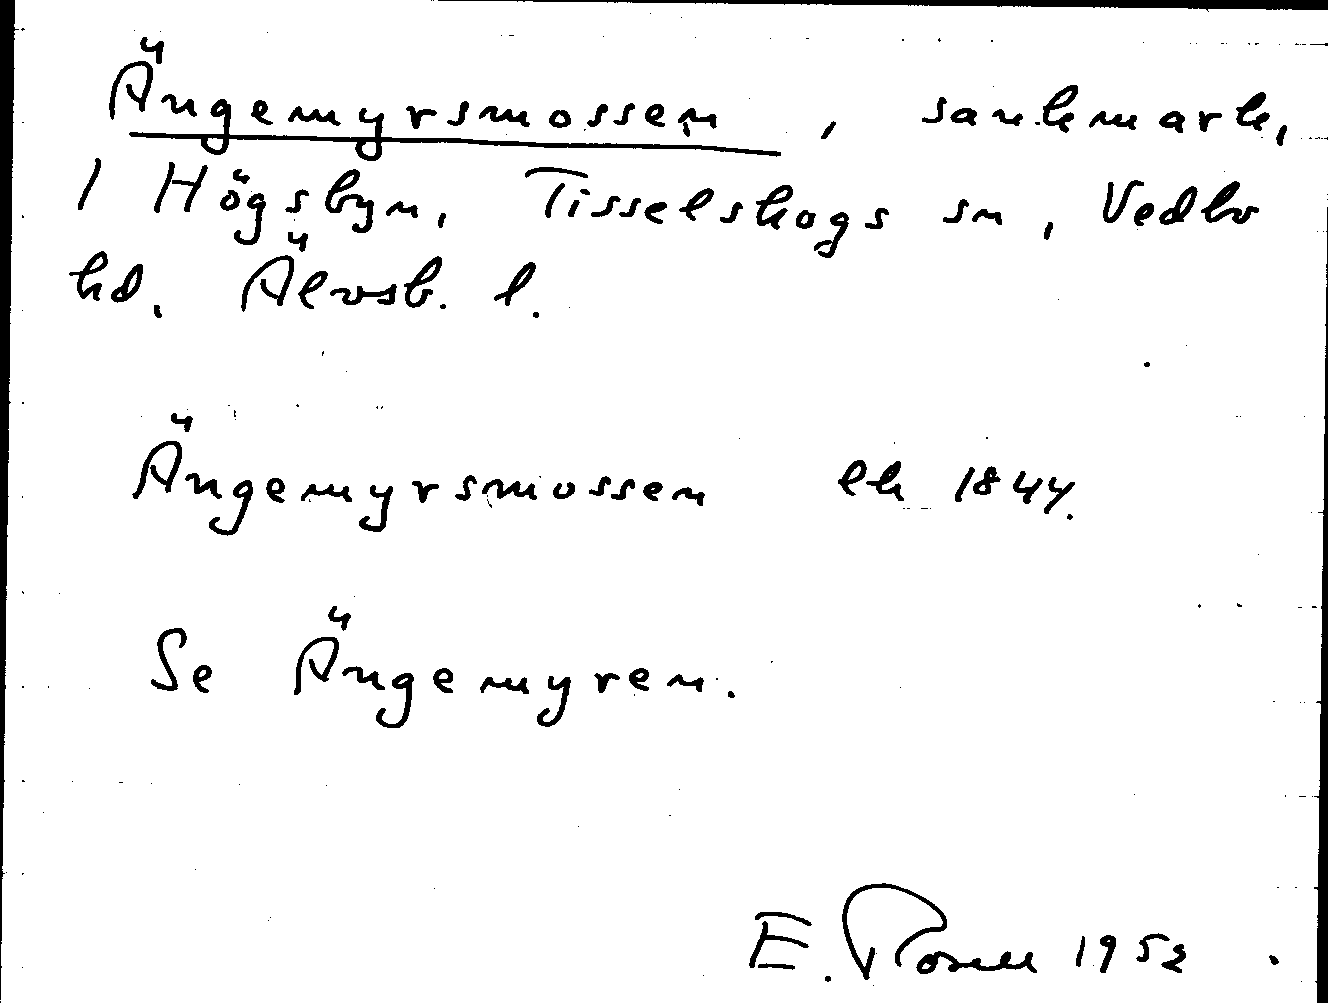 Ängemyrsmossen, sankmark,
1 Högsbyn, Tisselskogs sn, Vedbo
hd. Älvsb. l.
Ängemyrsmossen ek 1844.
Se Ängemyren.
E. Rosell 1952